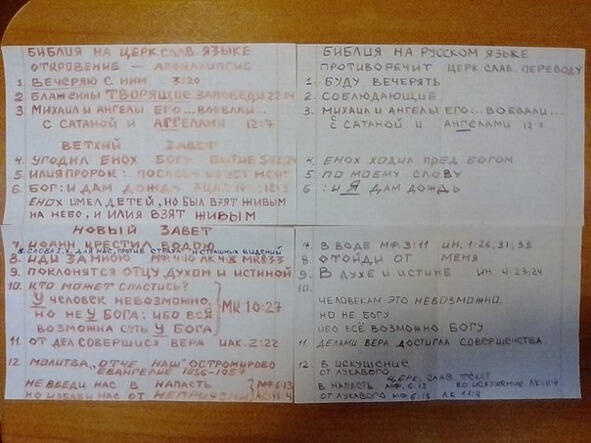 БИБЛИЯ НА ЦЕРК. СЛАВ. ЯЗЫКЕ
ОТКРОВЕНИЕ – АПОКАЛИПСИС
1. ВЕЧЕРЯЮ С НИМ 3:20
2. БЛАЖЕННЫ ТВОРЯЩИЕ ЗАПОВЕДИ 22:14
3. МИХАИЛ И АНГЕЛЫ ЕГО... ВОЕВАЛИ...
С САТАНОЙ И АГГЕЛАМИ 12:7
ВЕТХИЙ ЗАВЕТ
4. УГОДИЛ ЕНОХ БОГУ БЫТИЕ
5. ИЛИЯ ПРОРОК:
6. БОГ: И ДАМ ДОЖДЬ
ЕНОХ ИМЕЛ ДЕТЕЙ, НО БЫЛ ВЗЯТ ЖИВЫМ
НА НЕБО, И ИЛИЯ ВЗЯТ ЖИВЫМ
НОВЫЙ ЗАВЕТ
7. ИОАНН КРЕСТИЛ ВОДОЮ
8. ИДИ ЗА МНОЮ МФ 4:10 ЛК 4:8 МК 8:33
9. ПОКЛОНЯТСЯ ОТЦУ ДУХОМ И ИСТИНОЙ
10. КТО МОЖЕТ СПАСТИСЬ?
У ЧЕЛОВЕК НЕВОЗМОЖНО,
НО НЕ У БОГА: ИБО ВСЯ
ВОЗМОЖНА СУТЬ У БОГА
МК 10:27
11. ОТ ДЕЛ СОВЕРШИСЯ ВЕРА ИАК. 2:22
12. МОЛИТВА „ОТЧЕ НАШ" ОСТРОМИРОВО
ЕВАНГЕЛИЕ 1056-1057
НЕ ВВЕДИ НАС В НАПАСТЬ МФ 6:13
НО ИЗБАВИ НАС ОТ НЕПРИЯЗНИ ЛК 11:4
БИБЛИЯ НА РУССКОМ ЯЗЫКЕ
ПРОТИВОРЕЧИТ ЦЕРК. СЛАВ. ПЕРЕВОДУ
1. БУДУ ВЕЧЕРЯТЬ
2. СОБЛЮДАЮЩИЕ
3. МИХАИЛ И АНГЕЛЫ ЕГО... ВОЕВАЛИ...
С САТАНОЙ И АНГЕЛАМИ 12:7
4. ЕНОХ ХОДИЛ ПРЕД БОГОМ
5. ПО МОЕМУ СЛОВУ
6. : И Я ДАМ ДОЖДЬ
7. В ВОДЕ МФ. 3:11 ИН. 1:26,31,33
8. ОТОЙДИ ОТ МЕНЯ
9. В ДУХЕ И ИСТИНЕ ИН. 4:23,24
10.
ЧЕЛОВЕКАМ ЭТО НЕВОЗМОЖНО,
НО НЕ БОГУ
ИБО ВСЁ ВОЗМОЖНО БОГУ
11. ДЕЛАМИ ВЕРА ДОСТИГЛА СОВЕРШЕНСТВА
12. В ИСКУШЕНИЕ
ОТ ЛУКАВОГО
ЦЕРК. СЛАВ. ТЕКСТ
В НАПАСТЬ МФ. 6:13 ВО ИСКУШЕНИЕ ЛК 11:4
ОТ ЛУКАВОГО МФ. 6:13 ЛК. 11:4